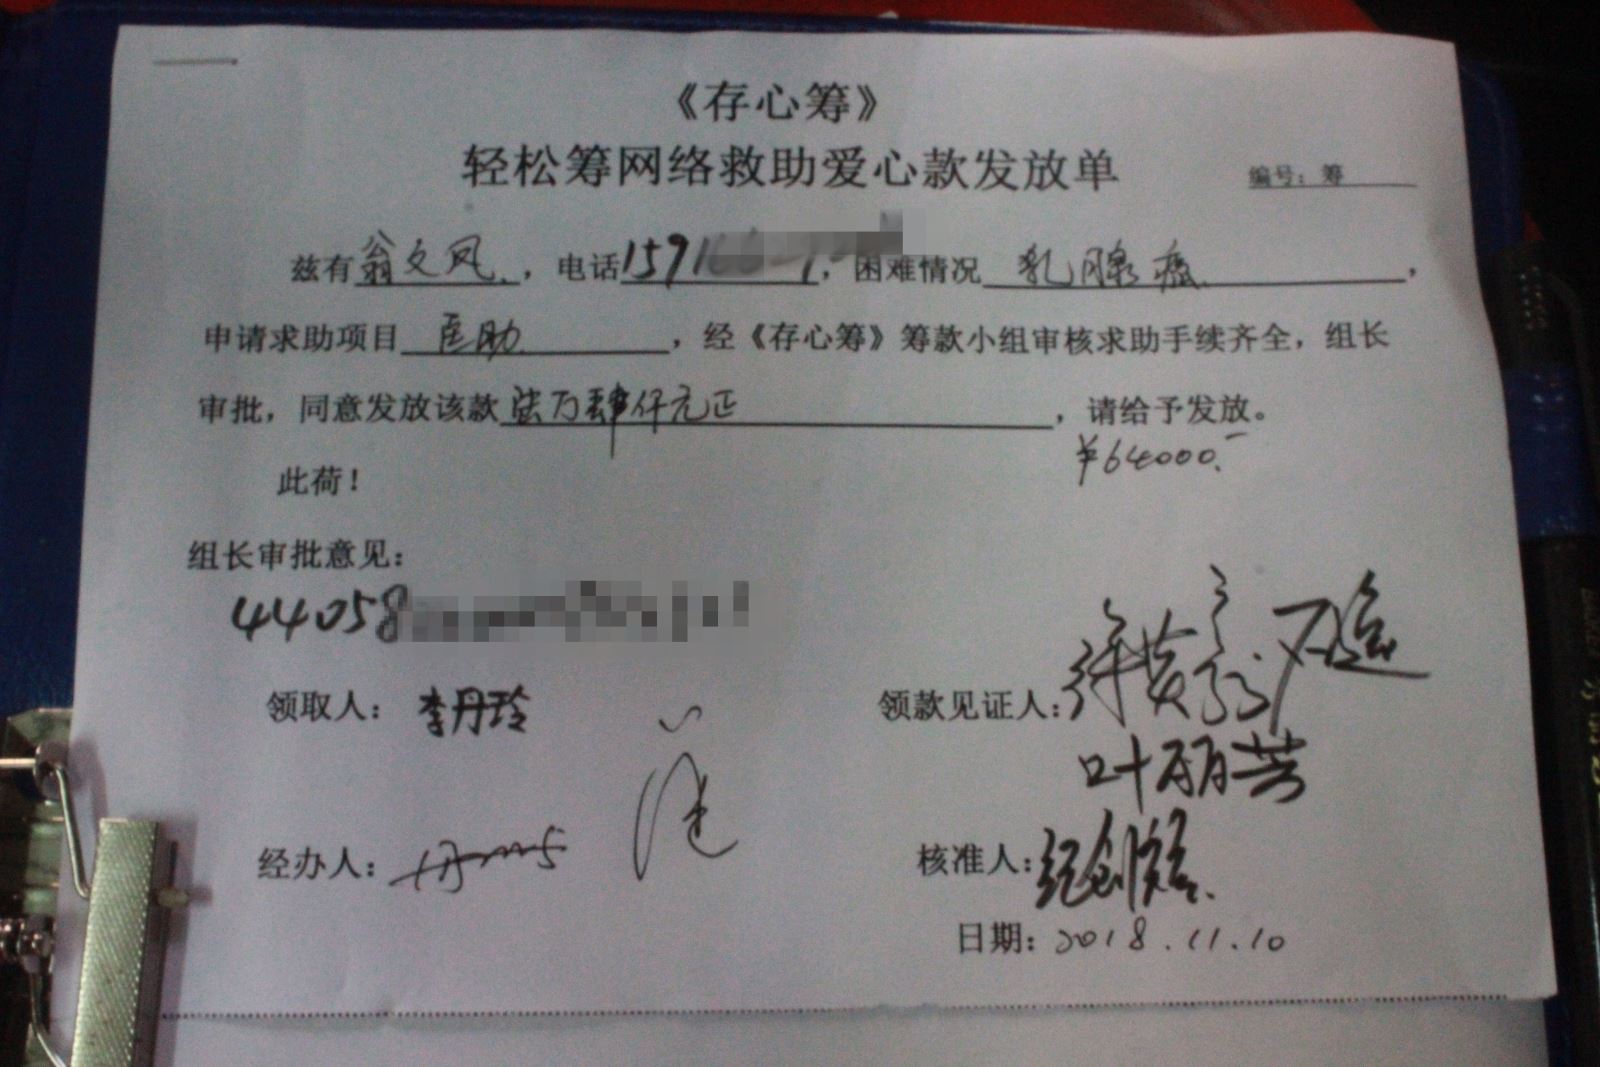 《存心筹》
轻松筹网络救助爱心款发放单
编号：筹
兹有翁文凤，电话15916，困难情况乳腺癌，
申请求助项目医助，经《存心筹》筹款小组审核求助手续齐全，组长
审批，同意发放该款陆万肆仟元正，请给予发放。
¥64000.-
此荷！
组长审批意见：
44058
领取人：李丹玲
领款见证人：
叶丽芳
经办人：
核准人：
日期：2018.11.10